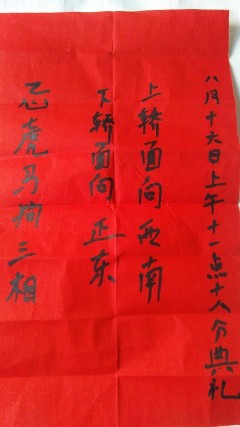 八月十六日上午十一点十八分典礼
上轿面向西南
下轿面向正东
忌虎马狗三相